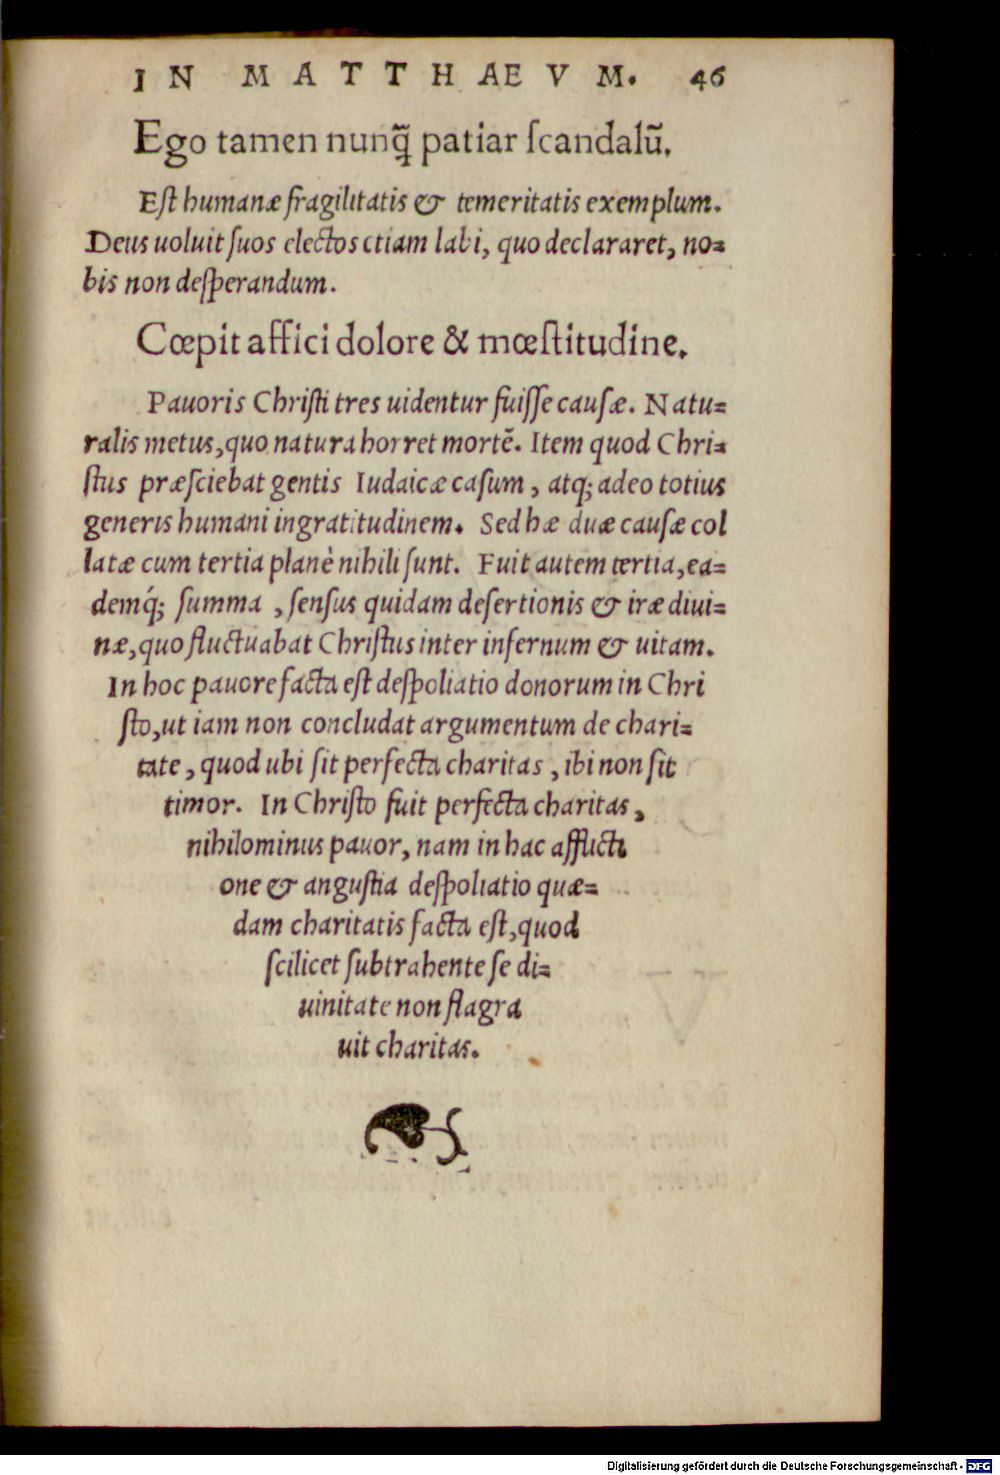 IN MATTHAEVM. 46
Ego tamen nunq̃ patiar ſcandalũ.
Eſt humanæ fragilitatis & temeritatis exemplum.
Deus uoluit ſuos electos etiam labi, quo declararet, no=
bis non deſperandum.
Cœpit affici dolore & mœſtitudine.
Pauoris Chriſti tres uidentur fuiſſe cauſæ. Natu=
ralis metus, quo natura horret mortẽ. Item quod Chri=
ſtus præſciebat gentis Iudaicæ caſum, atq; adeo totius
generis humani ingratitudinem. Sed hæ duæ cauſæ col
latæ cum tertia planè nihili ſunt. Fuit autem tertia, ea=
demq́; ſumma, ſenſus quidam deſertionis & iræ diui=
næ, quo fluctuabat Chriſtus inter infernum & uitam.
In hoc pauore facta eſt deſpoliatio donorum in Chri
ſto, ut iam non concludat argumentum de chari=
tate, quod ubi ſit perfecta charitas, ibi non ſit
timor. In Chriſto fuit perfecta charitas,
nihilominus pauor, nam in hac afflicti
one & anguſtia deſpoliatio quæ=
dam charitatis facta eſt, quod
ſcilicet ſubtrahente ſe di=
uinitate non flagra
uit charitas.
Digitalisierung gefördert durch die Deutsche Forschungsgemeinschaft - DFG